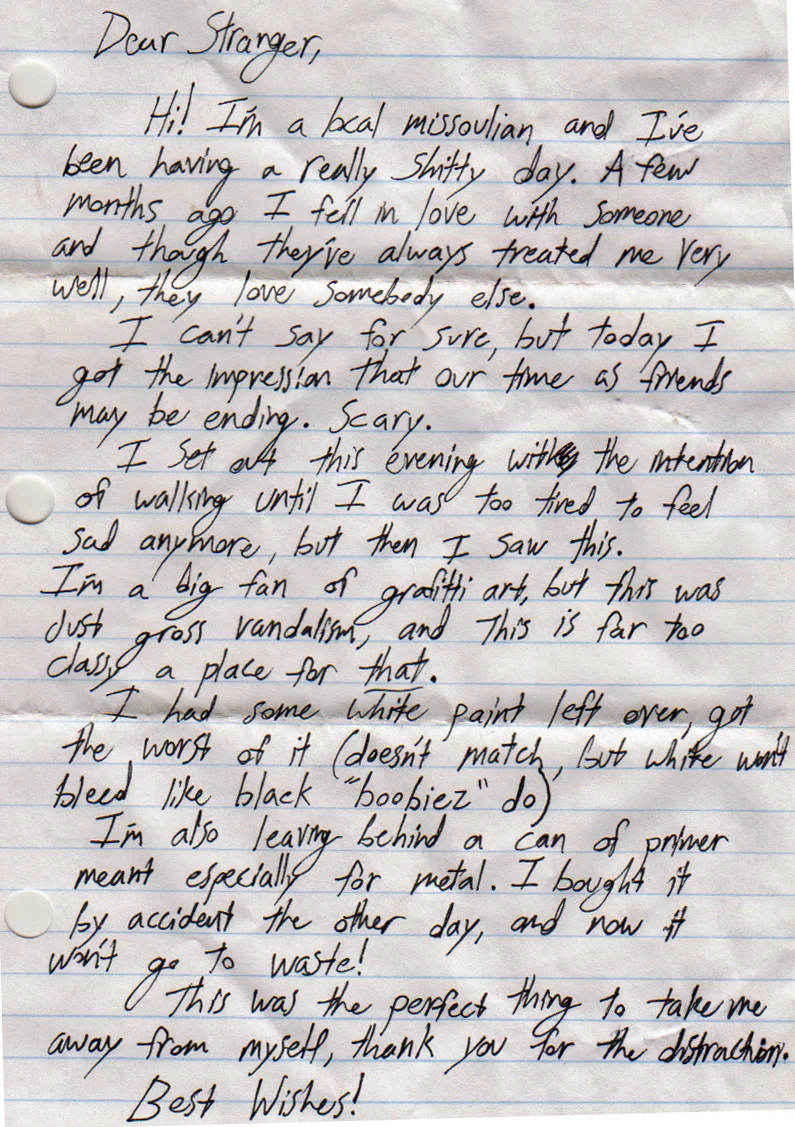 Dear Stranger,
Hi! I'm a local missoulian and I've
been having a really shitty day. A few
months ago I fell in love with someone
and though they've always treated me very
well, they love somebody else.
I can't say for sure, but today I
got the impression that our time as friends
may be ending. Scary.
I set out this evening with the intention
of walking until I was too tired to feel
sad anymore, but then I saw this.
I'm a big fan of grafitti art, but this was
Just gross vandalism, and This is far too
classy a place for that.
I had some white paint left over, got
the worst of it (doesn't match, but white won't
bleed like black "boobiez" do)
I'm also leaving behind a can of primer
meant especially for metal. I bought it
by accident the other day, and now it
won't go to waste!
This was the perfect thing to take me
away from myself, thank you for the distraction.
Best Wishes!